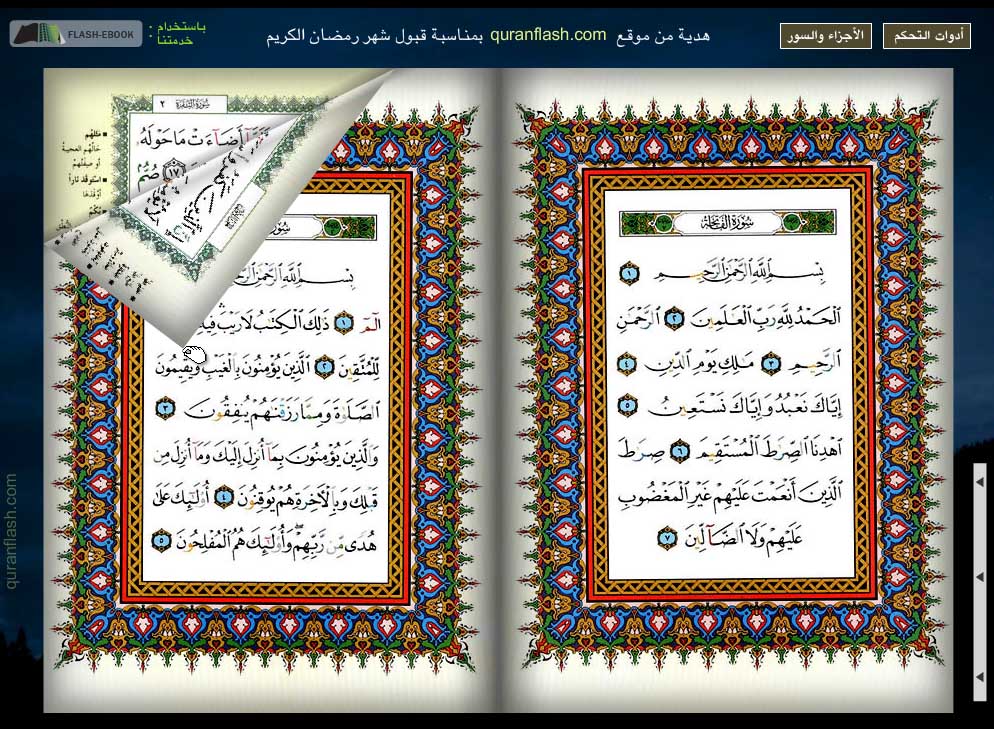 أدوات التحكم
الأجزاء والسور
هدية من موقع quranflash.com بمناسبة قبول شهر رمضان الكريم
باستخدام :
خدمتنا
FLASH-EBOOK
سُورَةُ الفَاتِحَة
بِسْمِ ٱللَّهِ ٱلرَّحْمَٰنِ ٱلرَّحِيمِ ١
ٱلْحَمْدُ لِلَّهِ رَبِّ ٱلْعَٰلَمِينَ ٢ ٱلرَّحْمَٰنِ
ٱلرَّحِيمِ ٣ مَٰلِكِ يَوْمِ ٱلدِّينِ ٤
إِيَّاكَ نَعْبُدُ وَإِيَّاكَ نَسْتَعِينُ ٥
ٱهْدِنَا ٱلصِّرَٰطَ ٱلْمُسْتَقِيمَ ٦ صِرَٰطَ
ٱلَّذِينَ أَنْعَمْتَ عَلَيْهِمْ غَيْرِ ٱلْمَغْضُوبِ
عَلَيْهِمْ وَلَا ٱلضَّآلِّينَ ٧
بِسْمِ ٱللَّهِ ٱلرَّحْمَٰنِ
الٓمٓ ١ ذَٰلِكَ ٱلْكِتَٰبُ لَا رَيْبَ فِيهِ
لِّلْمُتَّقِينَ ٢ ٱلَّذِينَ يُؤْمِنُونَ بِٱلْغَيْبِ وَيُقِيمُونَ
ٱلصَّلَوٰةَ وَمِمَّا رَزَقْنَٰهُمْ يُنفِقُونَ ٣
وَٱلَّذِينَ يُؤْمِنُونَ بِمَآ أُنزِلَ إِلَيْكَ وَمَآ أُنزِلَ مِن
قَبْلِكَ وَبِٱلْءَاخِرَةِ هُمْ يُوقِنُونَ ٤ أُو۟لَٰٓئِكَ عَلَىٰ
هُدًى مِّن رَّبِّهِمْ وَأُو۟لَٰٓئِكَ هُمُ ٱلْمُفْلِحُونَ ٥
سُورَةُ البَقَرَة ٢
أَضَآءَتْ مَا حَوْلَهُ
١٧ صُمٌّ
مَثَلُهُم
حَالُهُم العجيبة
أو صِفَتُهُمْ
استوقد ناراً
أوْقَدَها
quranflash.com